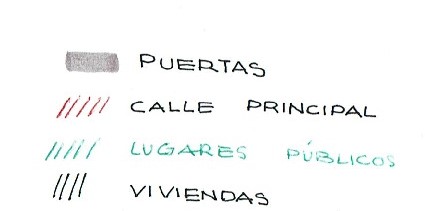 PUERTAS
CALLE PRINCIPAL
LUGARES PÚBLICOS
VIVIENDAS